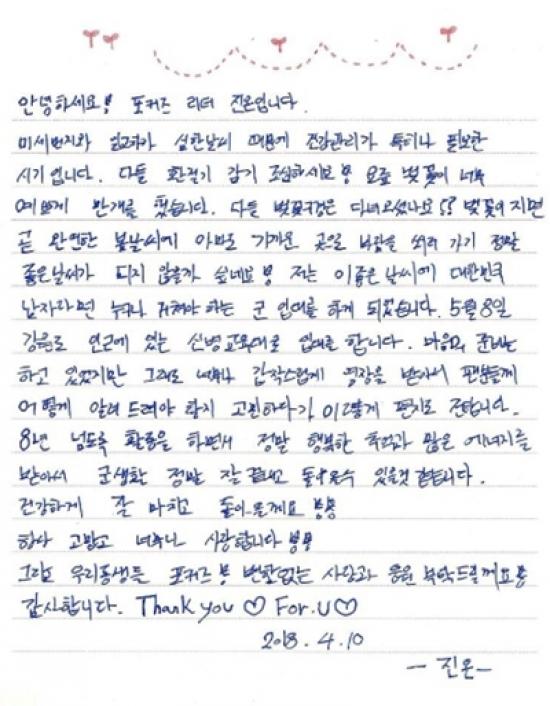 안녕하세요! 포커즈 리더 진온입니다.
미세먼지와 일교차가 심한날씨 때문에 건강관리가 특히나 필요한
시기 입니다. 다들 환절기 감기 조심하세요! 요즘 벚꽃이 너무
예쁘게 만개를 했습니다. 다들 벚꽃구경은 다녀오셨나요?? 벚꽃이 지면
곧 완연한 봄날씨에 아마도 가까운 곳일 바람을 쐬러 가기 정말
좋은날씨가 되지 않을까 싶네요! 저는 이좋은 날씨에 대한민국
남자라면 누구나 거쳐야 하는 군 입대를 하게 되었습니다. 5월 8일
강원도 인근에 있는 신병교육대로 입대를 합니다. 마음의 준비는
하고 있었지만 그래도 너무나 갑작스럽게 영장을 받아서 팬분들께
어떻게 알려 드려야 할지 고민하다가 이렇게 편지로 전합니다.
8년 넘도록 활동을 하면서 정말 행복한 추억과 많은 에너지를
받아서 군생활 정말 잘 끝내고 돌아올수 있을것 같습니다.
건강하게 잘 마치고 돌아올게요!!
항상 고맙고 너무나 사랑합니다!!
그리고 우리동생들 포커즈! 변함없는 사랑과 응원 부탁드릴께요!
감사합니다. Thank you ♡ For.U♡
2018. 4. 10
- 진온 -